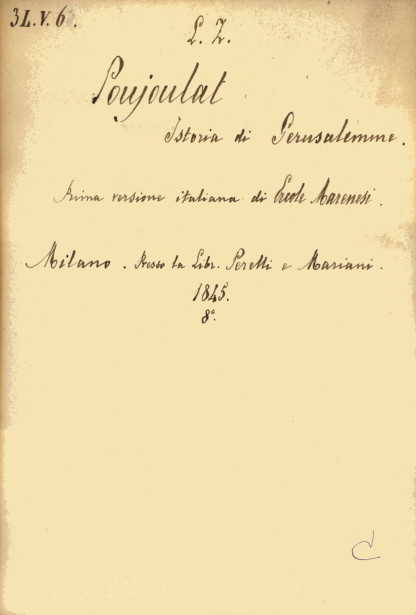 3L.V.6.
L. Z.
Poujoulat
Istoria di Gerusalemme.
Prima versione italiana di Ercole Marenesi.
Milano. Presso la Libr. Perelli e Mariani.
1845.
8°.
C